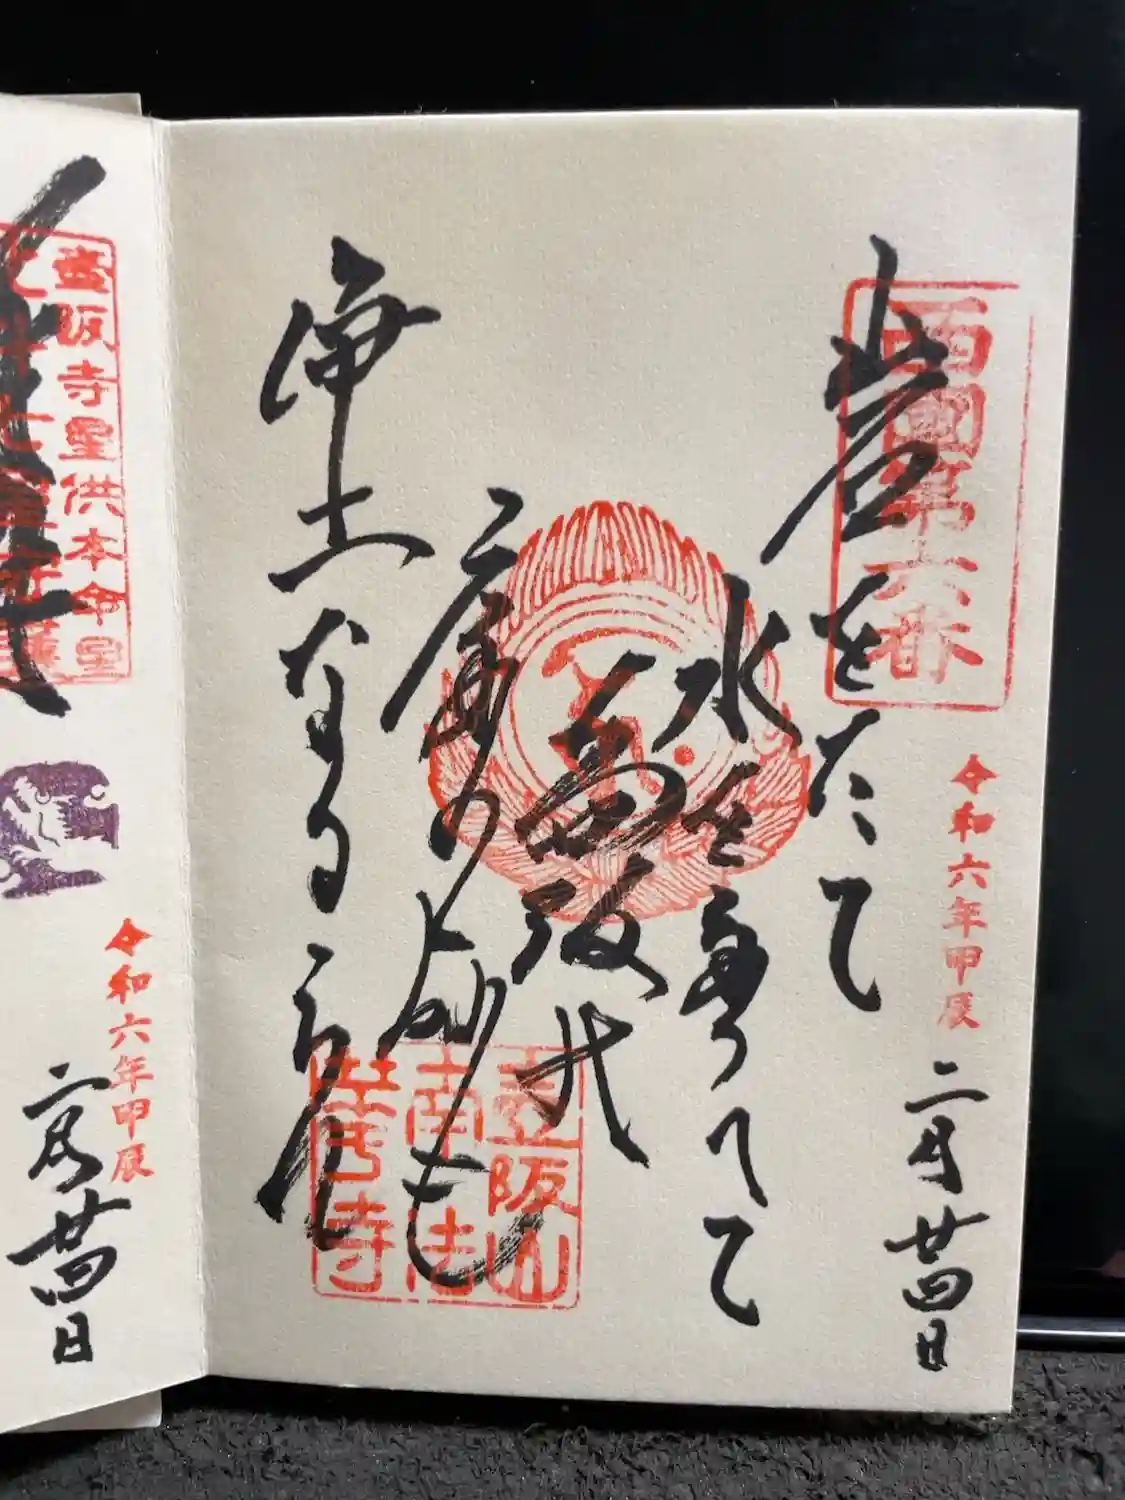 西國第六番
令和六年甲辰
二月廿四日
岩をたて
水をたゝへて
壷阪の
庭の砂も
浄土なるらん
壷阪山
南法
華寺
壷阪寺星供本命星
令和六年甲辰
二月廿四日